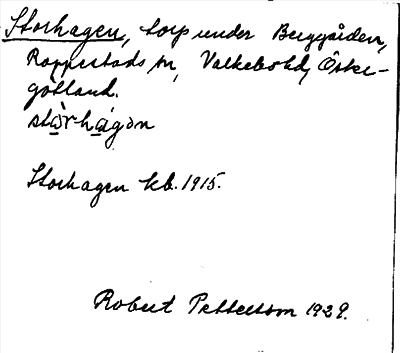 Storhagen, torp under Berggården,
Rappestads sn, Valkebo hd, Öster-
götland.
stòrhágən
Storhagen kb. 1915.
Robert Pettersson 1929.